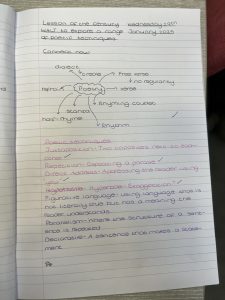 Lesson of the Century Wednesday 29th
WALT to explore a range January 2025
of poetic techniques.
Connect now:
dialect
create
Free verse
no regularity
Poetry
verse
stanza
Anything counted
half-rhyme
Rhythm
Poetic techniques:
Juxtaposition - Two opposites next to each
other
Repetition - Repeating a phrase
Direct Address - Addressing the reader using
you
Hyperbole - Exaggeration
Figurative language - using language which is
not literally true but has a meaning the
reader understands.
Parallelism - Where the structure of a sent-
ence is repeated
Declarative - A sentence that makes a state-
ment.